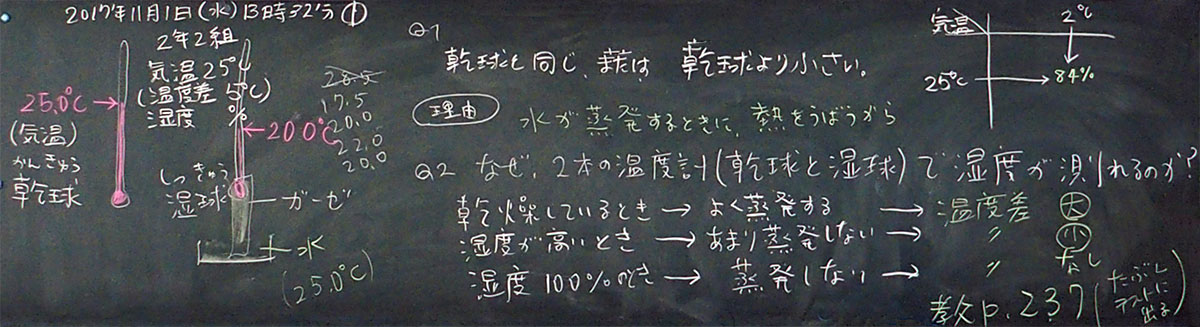 2017年11月1日(水)13時32分①
2年2組
気温25℃
(温度差5℃)
湿度 %
25.0℃→
(気温)
かんきゅう
乾球
←20.0℃
28.5
17.5
20.0
22.0
20.0
しっきゅう
湿球
ガーゼ
水
(25.0℃)
Q1
乾球と同じ、または 乾球より小さい。
理由
水が蒸発するときに、熱をうばうから
Q2 なぜ、2本の温度計(乾球と湿球)で湿度が測れるのか?
乾燥しているとき→よく蒸発する→温度差 大
湿度が高いとき→あまり蒸発しない→〃 小
湿度100%のとき→蒸発しない→〃 なし
教p.237(たぶん
テストに
出る)
気温
2℃
25℃→84%